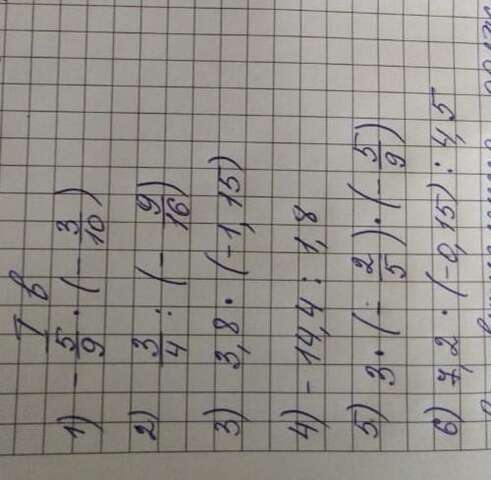 I в
1) - 5/9 · (- 3/10)
2) 3/4 : (- 9/16)
3) 3,8 · (-1,15)
4) - 14,4 : 1,8
5) 3 · (- 2/5) · (- 5/9)
6) 7,2 · (-0,15) : 4,5